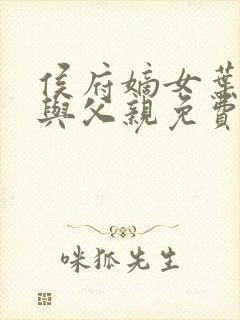 侯府嫡女葉
與父親免費
咪狐先生